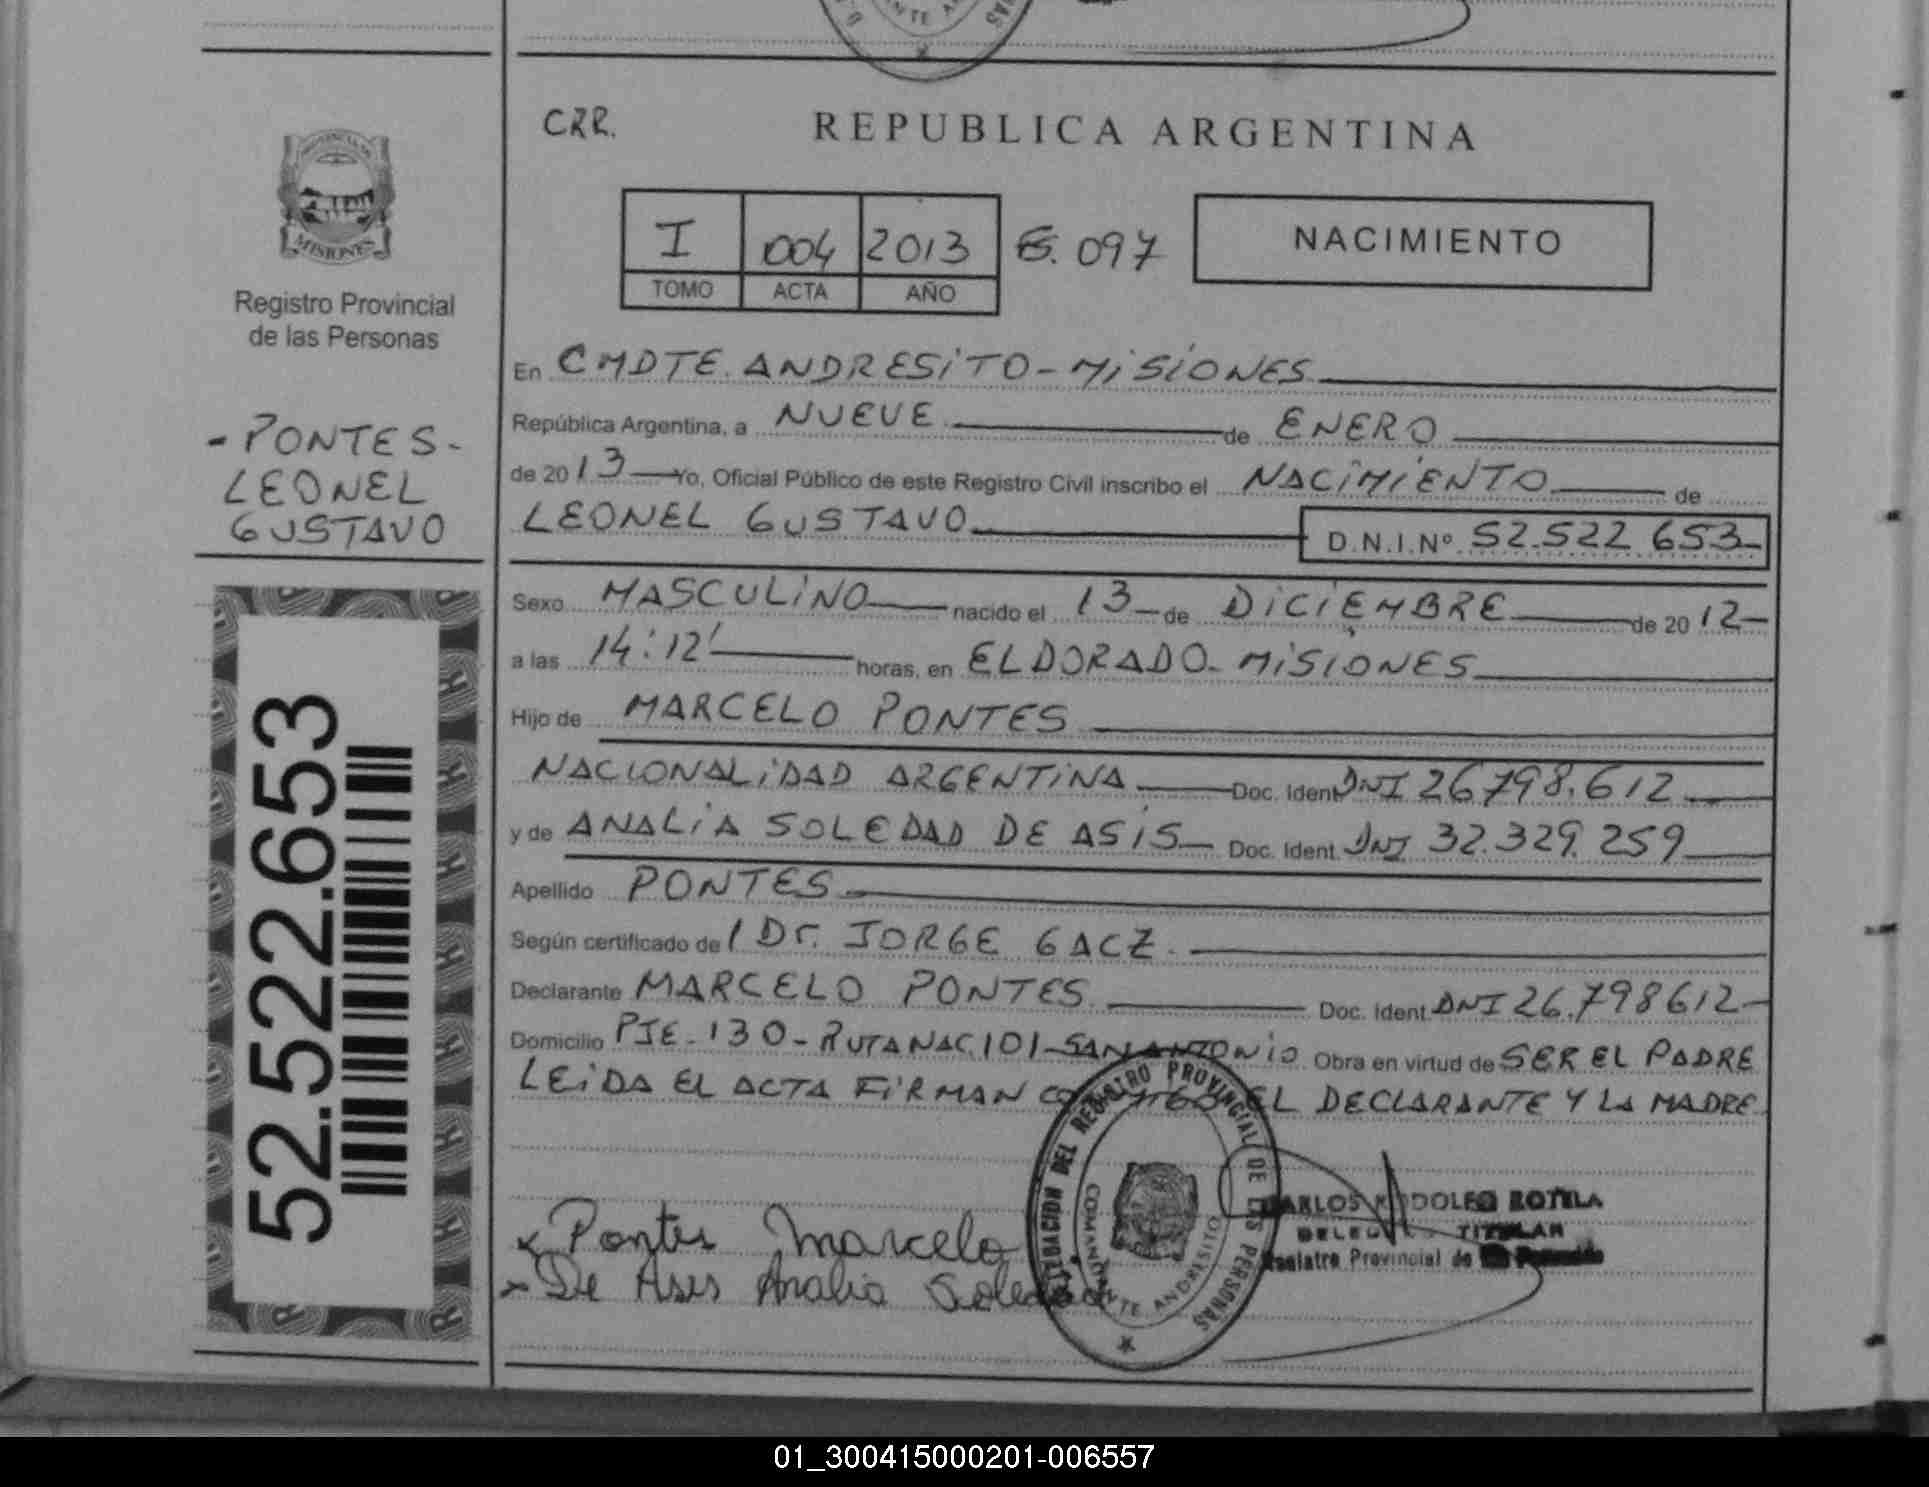 CRR.
REPUBLICA ARGENTINA
PROVINCIA DE
MISIONES
Registro Provincial
de las Personas
I 004 2013 E. 097
TOMO ACTA AÑO
NACIMIENTO
- PONTES -
LEONEL
GUSTAVO
52.522.653
En CMDTE. ANDRESITO - MISIONES
República Argentina, a NUEVE de ENERO
de 2013 Yo, Oficial Público de este Registro Civil inscribo el NACIMIENTO de
LEONEL GUSTAVO D.N.I.Nº 52.522.653
Sexo MASCULINO nacido el 13 de DICIEMBRE de 2012
a las 14:12' horas, en ELDORADO - MISIONES
Hijo de MARCELO PONTES
NACIONALIDAD ARGENTINA Doc. Ident. DNI 26798.612
y de ANALIA SOLEDAD DE ASIS Doc. Ident. DNI 32.329.259
Apellido PONTES
Según certificado de / Dr. JORGE GACZ.
Declarante MARCELO PONTES Doc. Ident. DNI 26.798612
Domicilio PJE - 130 - RUTA NAC. 101 - SAN ANTONIO Obra en virtud de SER EL PADRE
LEIDA EL ACTA FIRMAN CONMIGO EL DECLARANTE Y LA MADRE
x Pontes Marcelo
x De Asis Analia Soledad
DEL REGISTRO PROVINCIAL DE LAS PERSONAS
COMANDANTE ANDRESITO
CARLOS RODOLFO ROTELA
DELEGADO TITULAR
Registro Provincial de
01_300415000201-006557